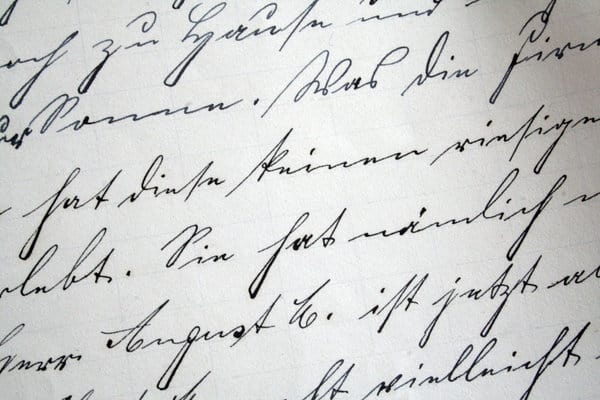 och zu Hause und
Sonne. Was die Firm
hat diese keinen riesigen
rlebt. Sie hat nämlich
Herr August C. ist jetzt a
vielleicht